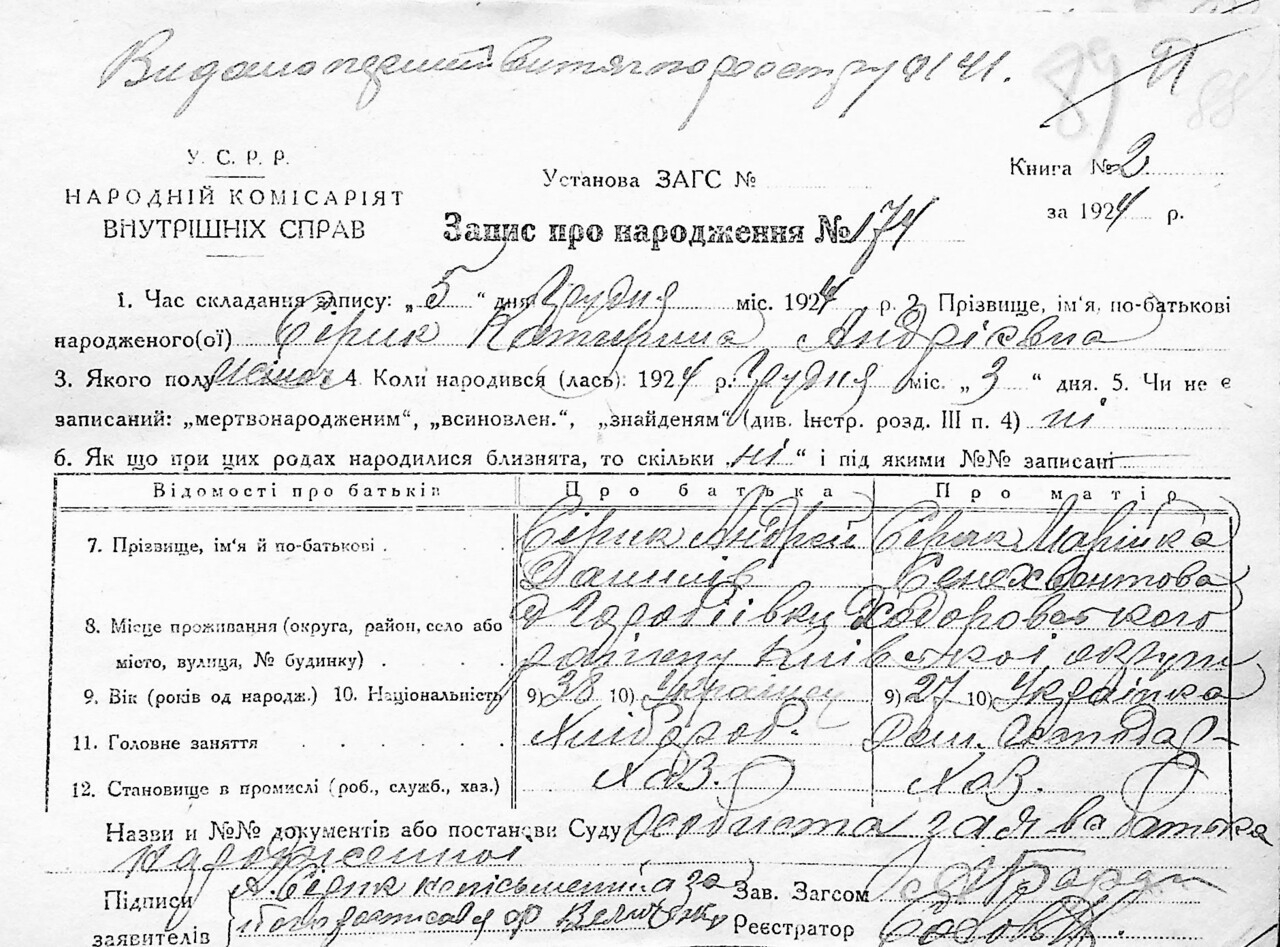 Видано перший витяг по реєстру №41.
89 91 88
У. С. Р. Р.
НАРОДНІЙ КОМІСАРІЯТ
ВНУТРІШНІХ СПРАВ
Установа ЗАГС №
Книга № 2
за 1924 р.
Запис про народження № 174
1. Час складання запису: „5“ дня Грудня міс. 1924 р. 2. Прізвище, ім'я, по-батькові
народженого(ої) Сірик Катерина Андріївна
3. Якого полу жіноч 4. Коли народився (лась): 1924 р. Грудня міс. „3“ дня. 5. Чи не є
записаний: „мертвонародженим“, „всиновлен.“, „знайденям“ (див. Інстр. розд. III п. 4) ні
6. Як що при цих родах народилися близнята, то скільки „ні“ і під якими №№ записані
Відомості про батьків Про батька Про матір
7. Прізвище, ім'я й по-батькові . . . . Сірик Андрей Сірик Марійка
Данилів
8. Місце проживання (округа, район, село або Ходоровського
місто, вулиця, № будинку) . . . . району Київської округи
9. Вік (років од народж.) 10. Національність 9) 38 10) Українец 9) 27 10) Українка
11. Головне заняття . . . . . Хлібороб. Дом. Господар-
12. Становище в промислі (роб., служб., хаз.) Хаз. Хаз.
Назви и №№ документів або постанови Суду Особиста заява батька
народженної
Підписи А. Сірик неписьменний а за Зав. Загсом
заявителів його росписався Реєстратор